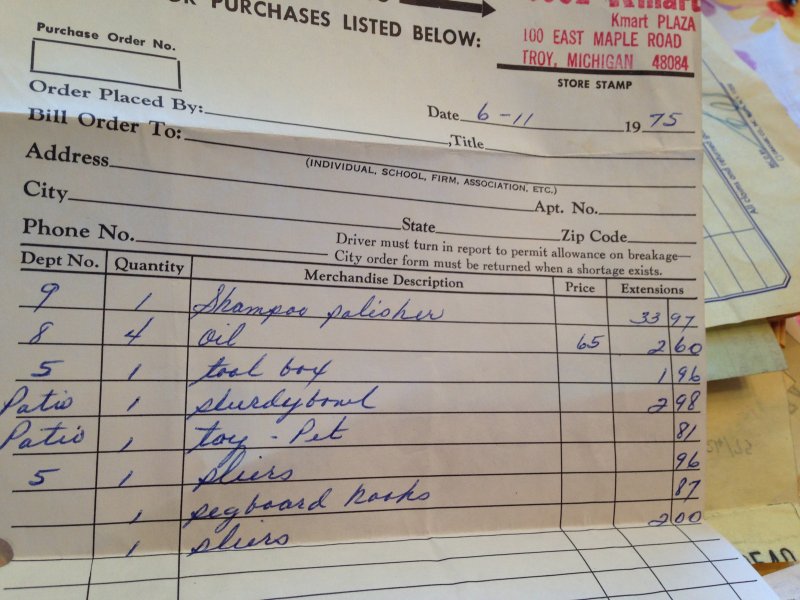 PURCHASES LISTED BELOW:
Kmart
Kmart PLAZA
100 EAST MAPLE ROAD
TROY, MICHIGAN 48084
STORE STAMP
Purchase Order No.
Order Placed By:
Date 6-11 1975
Bill Order To: ,Title
(INDIVIDUAL, SCHOOL, FIRM, ASSOCIATION, ETC.)
Address
Apt. No.
City State Zip Code
Phone No.
Driver must turn in report to permit allowance on breakage—
City order form must be returned when a shortage exists.
Dept No. Quantity Merchandise Description Price Extensions
9 1 Shampoo polisher 33 97
8 4 Oil 65 2 60
5 1 tool box 1 96
Patio 1 sturdybowl 2 98
Patio 1 toy - Pet 81
5 1 pliers 96
1 pegboard hooks 87
1 pliers 2 00